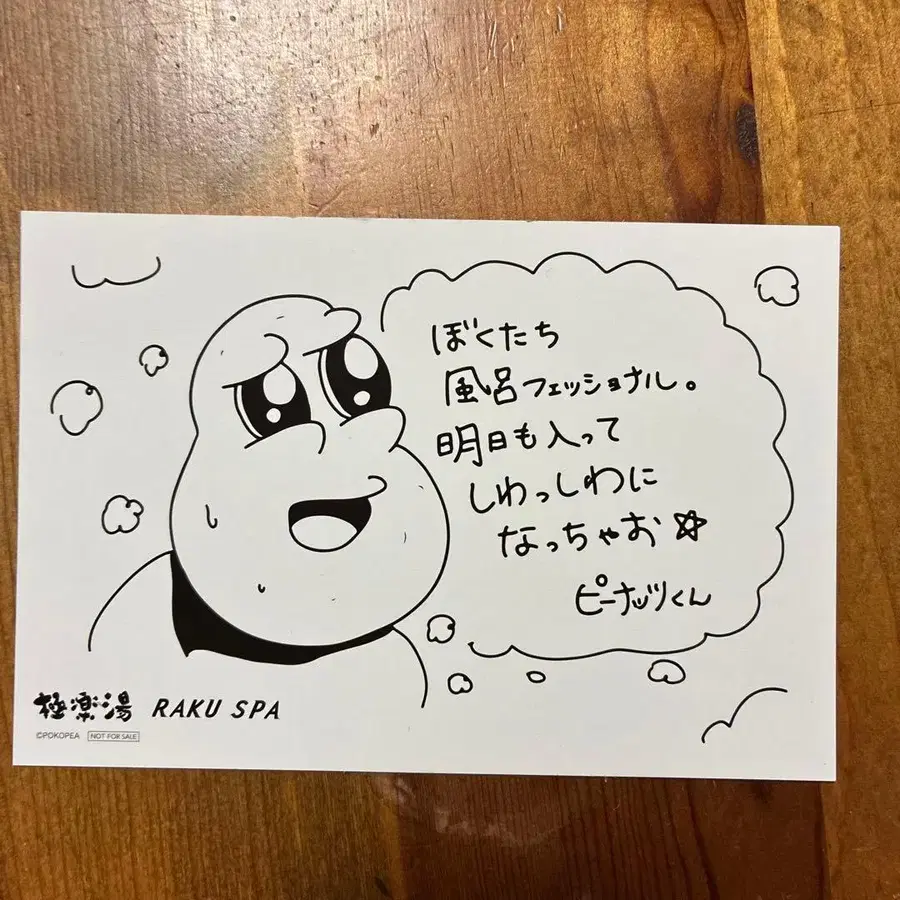 ぼくたち
風呂フェッショナル。
明日も入って
しわっしわに
なっちゃお☆
ピーナッツくん
極楽湯 RAKU SPA
©POKOPEA NOT FOR SALE